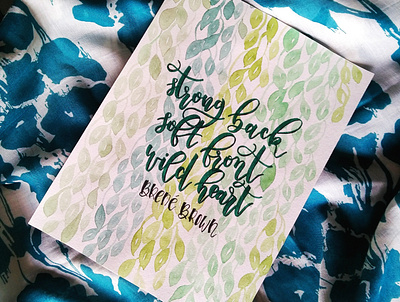 strong back
soft front
wild heart
BRENÉ BROWN